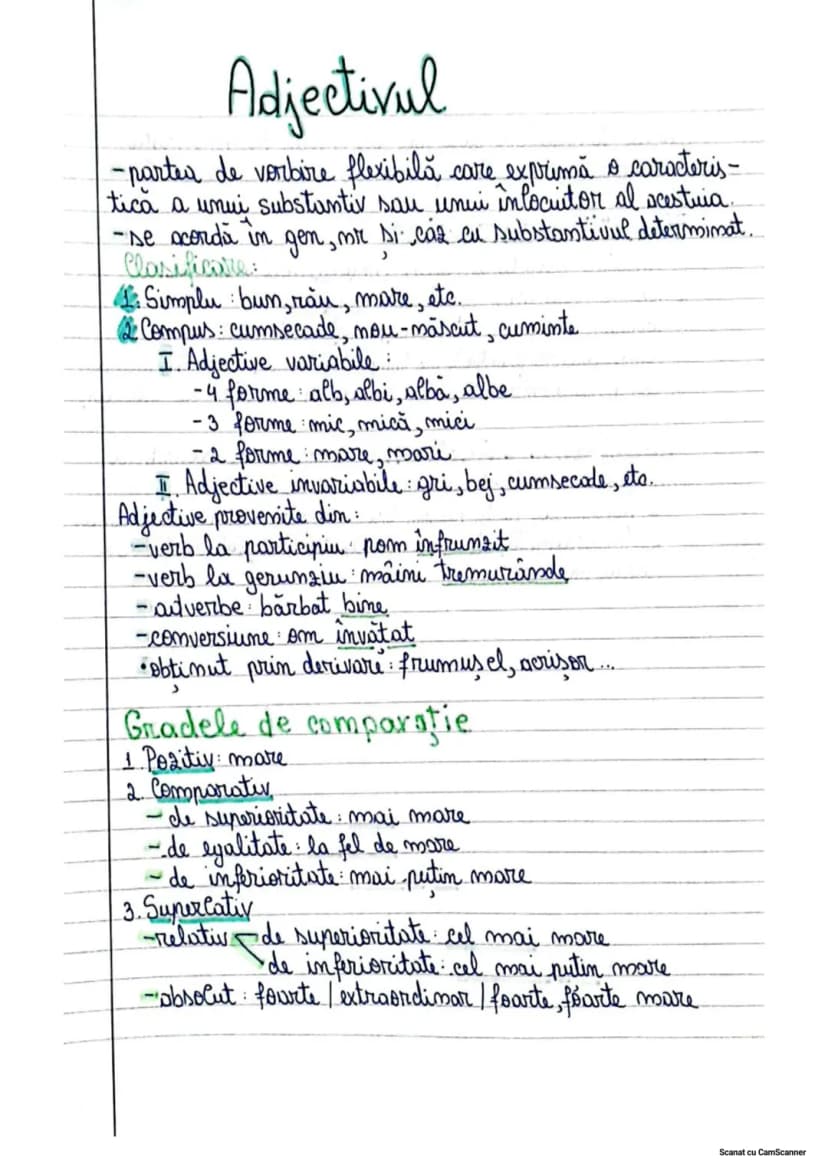 Adjectivul
-partea de vorbire flexibilă care exprimă o caracteris-
tică a unui substantiv sau unui înlocuitor al acestuia.
-se acordă în gen, nr și caz cu substantivul determinat.
Clasificare:
1. Simplu: bun, rău, mare, etc.
2. Compus: cumsecade, nou-născut, cuminte
I. Adjective variabile:
-4 forme: alb, albi, albă, albe
-3 forme: mic, mică, mici
-2 forme: mare, mari
II. Adjective invariabile: gri, bej, cumsecade, etc.
Adjective provenite din:
-verb la participiu: pom înfrunzit
-verb la gerunziu: mâini tremurânde
-adverbe: bărbat bine
-conversiune: om învătat
•obținut prin derivare: frumușel, acrișor...
Gradele de comparație
1. Pozitiv: mare
2. Comparativ
-de superioritate: mai mare
-de egalitate: la fel de mare
-de inferioritate: mai puțin mare
3. Superlativ
-relativ de superioritate: cel mai mare
de inferioritate: cel mai putin mare
-absolut: foarte / extraordinar / foarte, foarte mare
Scanat cu CamScanner